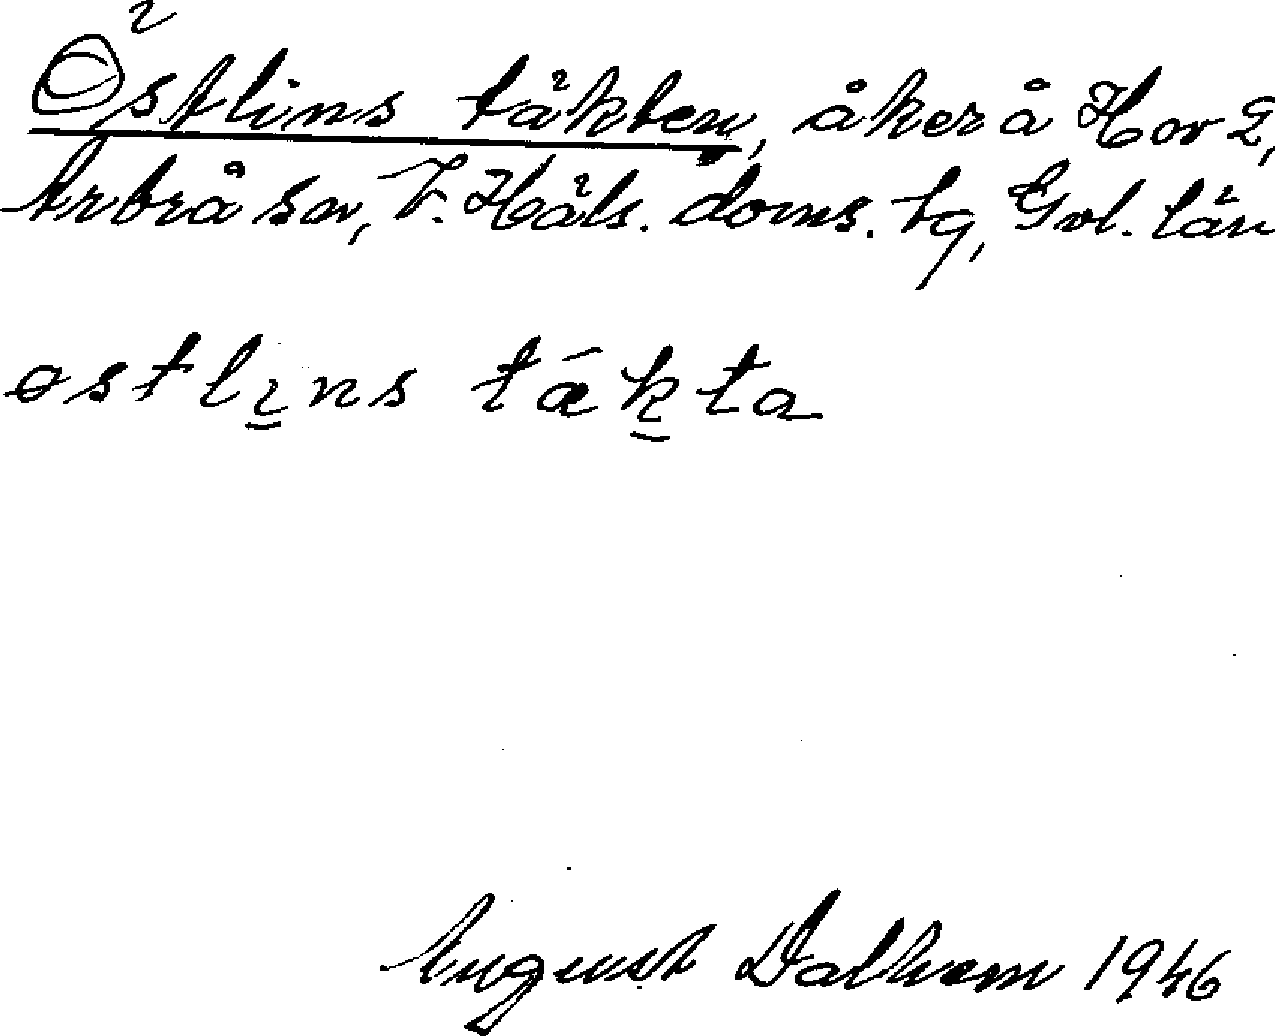 Östlins täkten, åker å Hov 2,
Arbrå sn, V. Häls. doms. tg, Gvl. län
østlɪns tǽkta
August Dalhem 1946